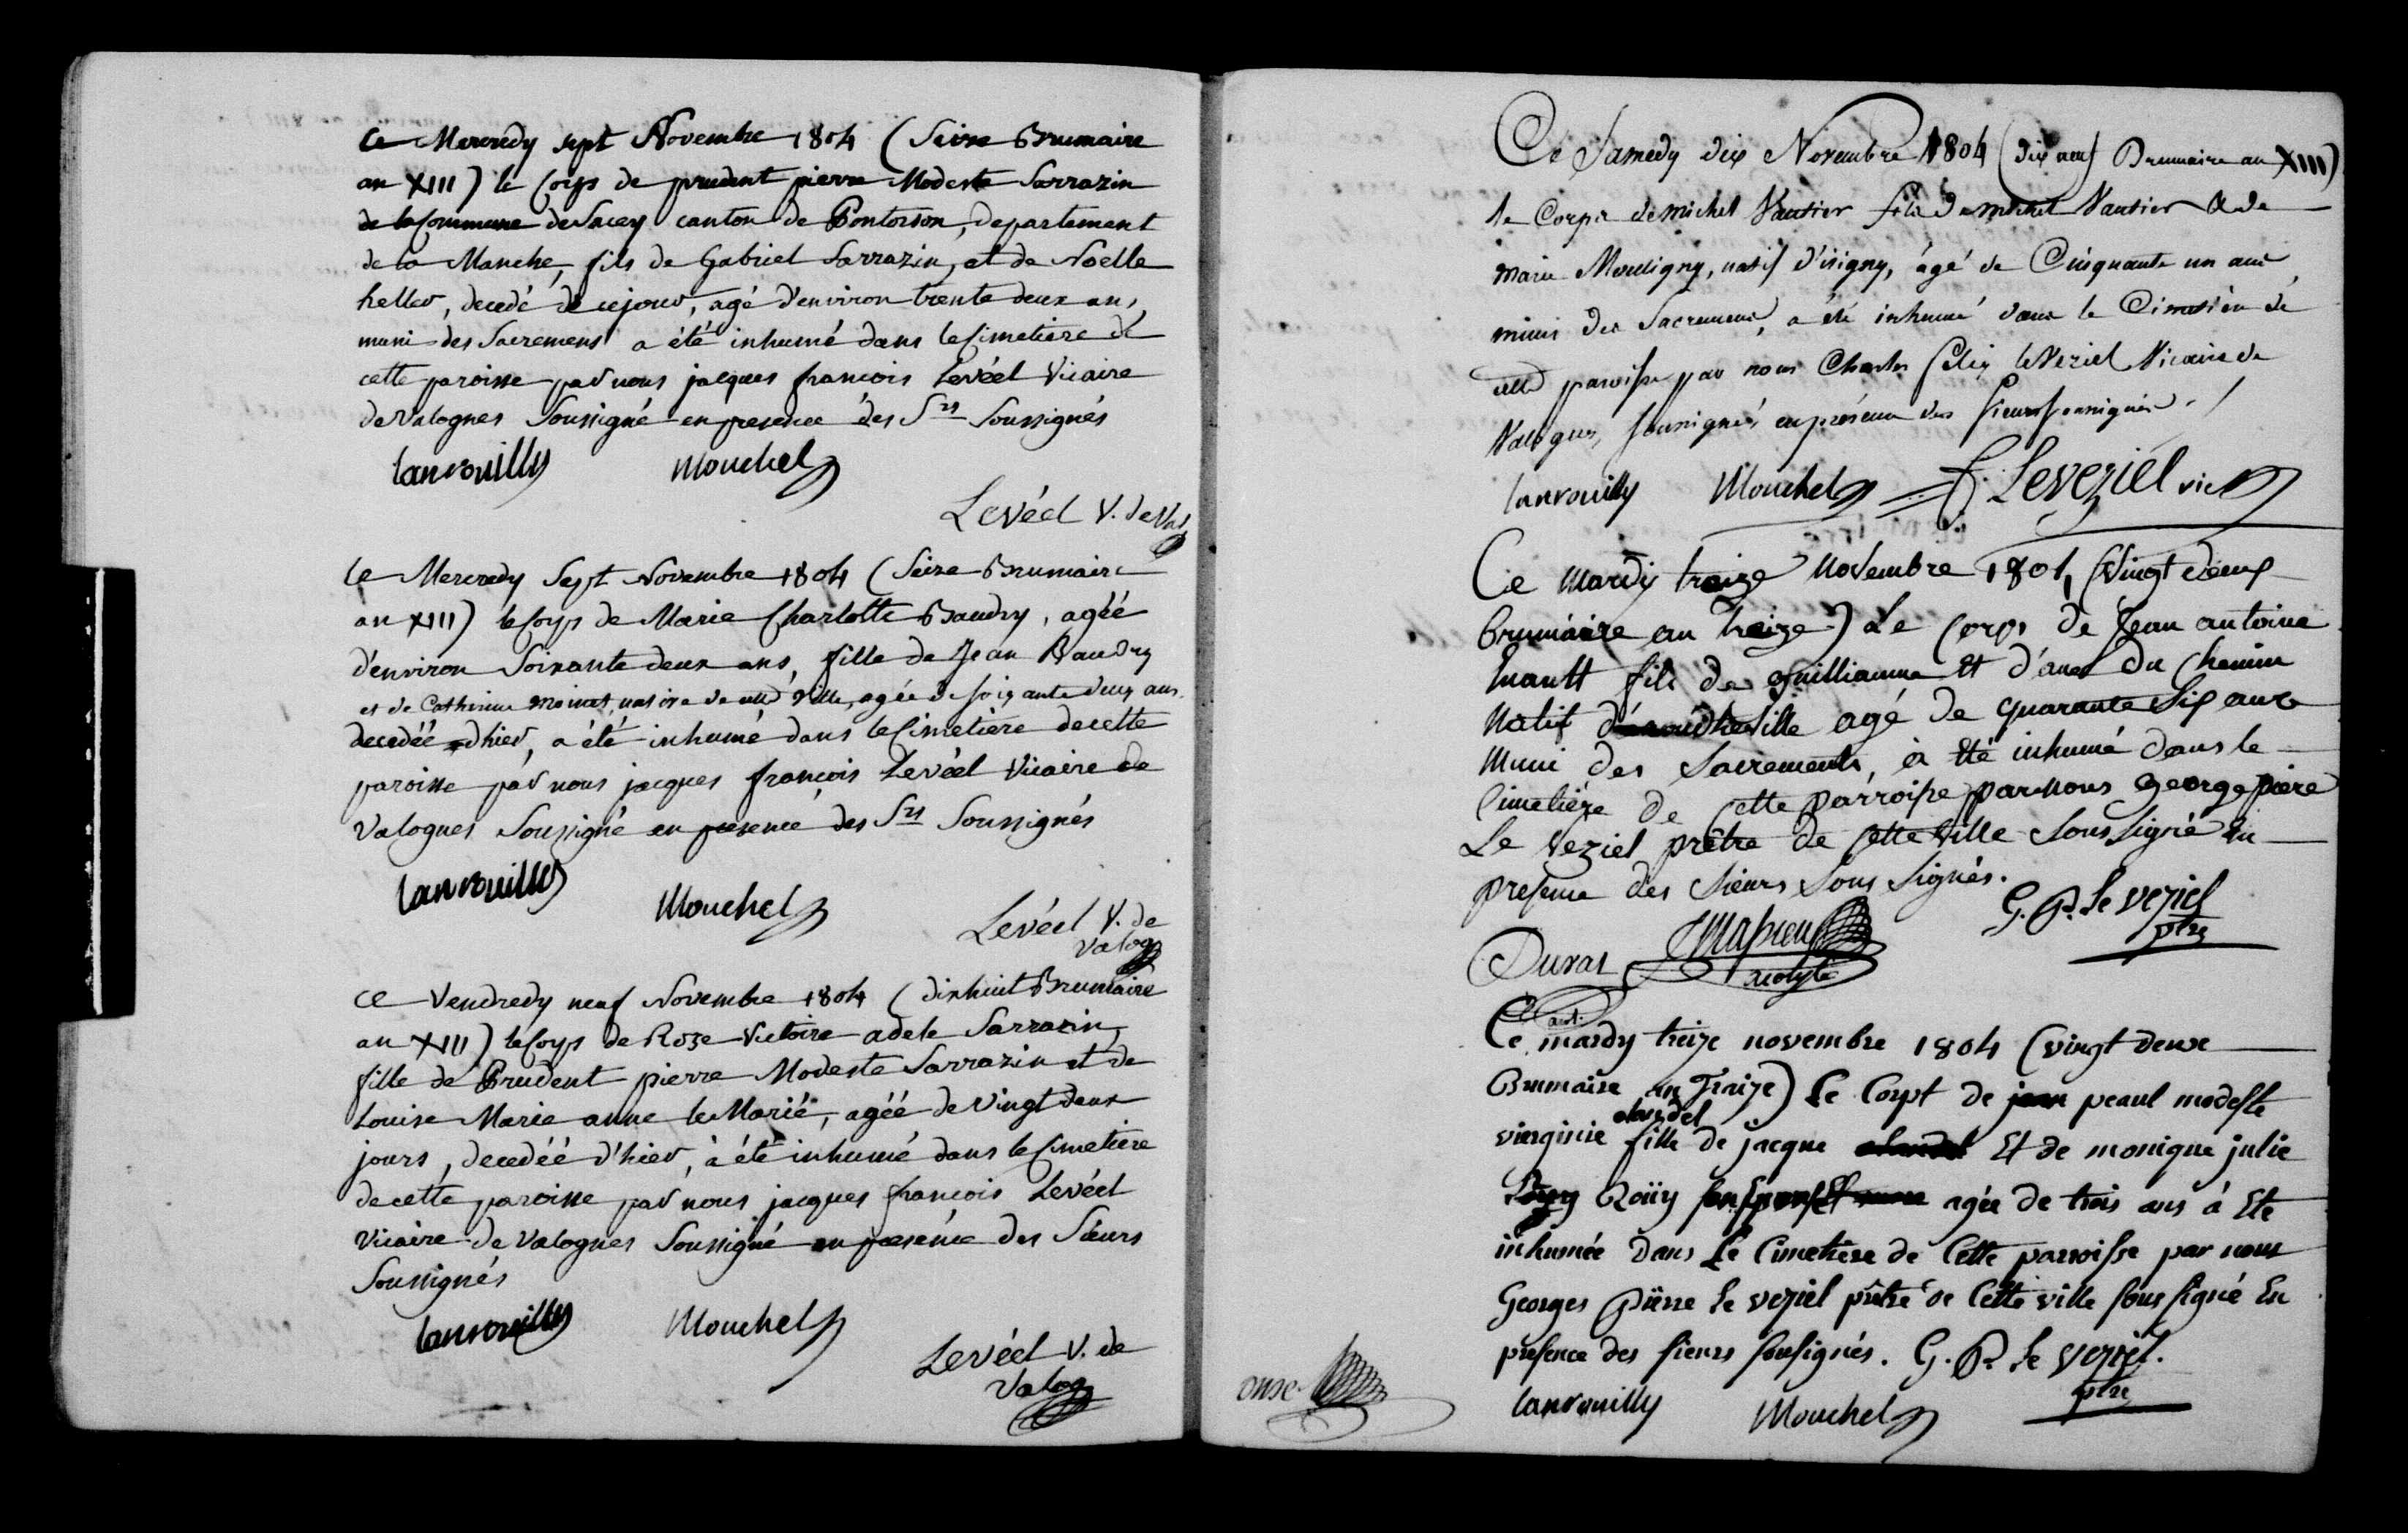 Ce Mercredy sept Novembre 1804 (Seize Brumaire
an XIII) le Corps de prudent pierre Modeste Sarrazin
de la Commune de Sacey canton de Pontorson, departement
de la Manche, fils de Gabriel Sarrazin, et de Noelle
heller, decedé de ce jour, agé d'environ trente deux ans,
muni des Sacremens a été inhumé dans le Cimetiere de
cette paroisse par nous jacques francois Levéel Vicaire
de Valognes Soussigné en presence des Srs Soussignés
Lanrouilly Mouchel
Levéel V. de Val
Ce Mercredy Sept Novembre 1804 (Seize Brumaire
an XIII) le Corps de Marie Charlotte Baudry, agéé
d'environ Soixante deux ans, fille de Jean Baudry
et de Catherine moinet, native de cette ville, agée de soixante deux ans
decedéé d'hier, a été inhumé dans le Cimetiere de cette
paroisse par nous jacques francois Levéel Vicaire de
Valognes Soussigné en presence des Srs Soussignés
Lanrouilly
Mouchel
Levéel V. de
Valog
Ce Vendredy neuf Novembre 1804 (dixhuit Brumaire
an XIII) le Corps de Roze Victoire adele Sarrazin,
fille de Prudent pierre Modeste Sarrazin et de
Louise Marie anne le Marié, agéé de Vingt deux
jours, decedéé d'hier, à été inhumé dans le Cimetiere
de cette paroisse par nous jacques francois Levéel
Vicaire de Valognes Soussigné en presence des Sieurs
Soussignés
Lanrouilly Mouchel
Levéel V. de
Valog
Ce Samedy dix Novembre 1804 (dix neuf Brumaire an XIII)
le Corps de michel Vautier fils de michel Vautier & de
marie Mouligny, natif d'isigny, âgé de Cinquante un ans
muni des Sacremens, a été inhumé dans le Cimetière de
cette paroisse par nous Charles félix leVeziel Vicaire de
Valognes, soussigné, en présence des sieurs soussignés.
Lanrouilly Mouchel f. Leveziel vic
Ce mardy treize Novembre 1804 (Vingt deux
brumaire an treize) Le Corps de Jean antoine
fils de guilliaume Et d'anne du Chemin
Natif agé de quarante Six ans
Muni des Sacrements, à Eté inhumé dans le
Cimetière de Cette parroisse par nous george pierre
Le Veziel prêtre de Cette Ville Sous Signé En
presence des Sieurs Sous Signés.
G. P. le veziel
ptre
Duval
acolyte
acol.
Ce mardy treize novembre 1804 (vingt deux
Brumaire an Traize) Le Corps de jean peaul modeste
clandel
virginie fille de jacque clandel Et de monique julie
Roüy agée de trois ans á Eté
inhumée Dans Le Cimetière de Cette parroisse par nous
Georges Pierre le veziel prêtre de Cette ville sous signé En
presence des sieurs sousignés. G. P. le veziel.
ptre
Lanrouilly Mouchel
onze